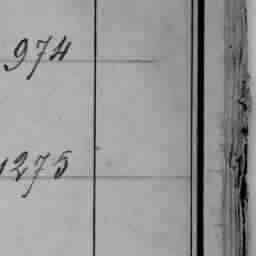 974
1275